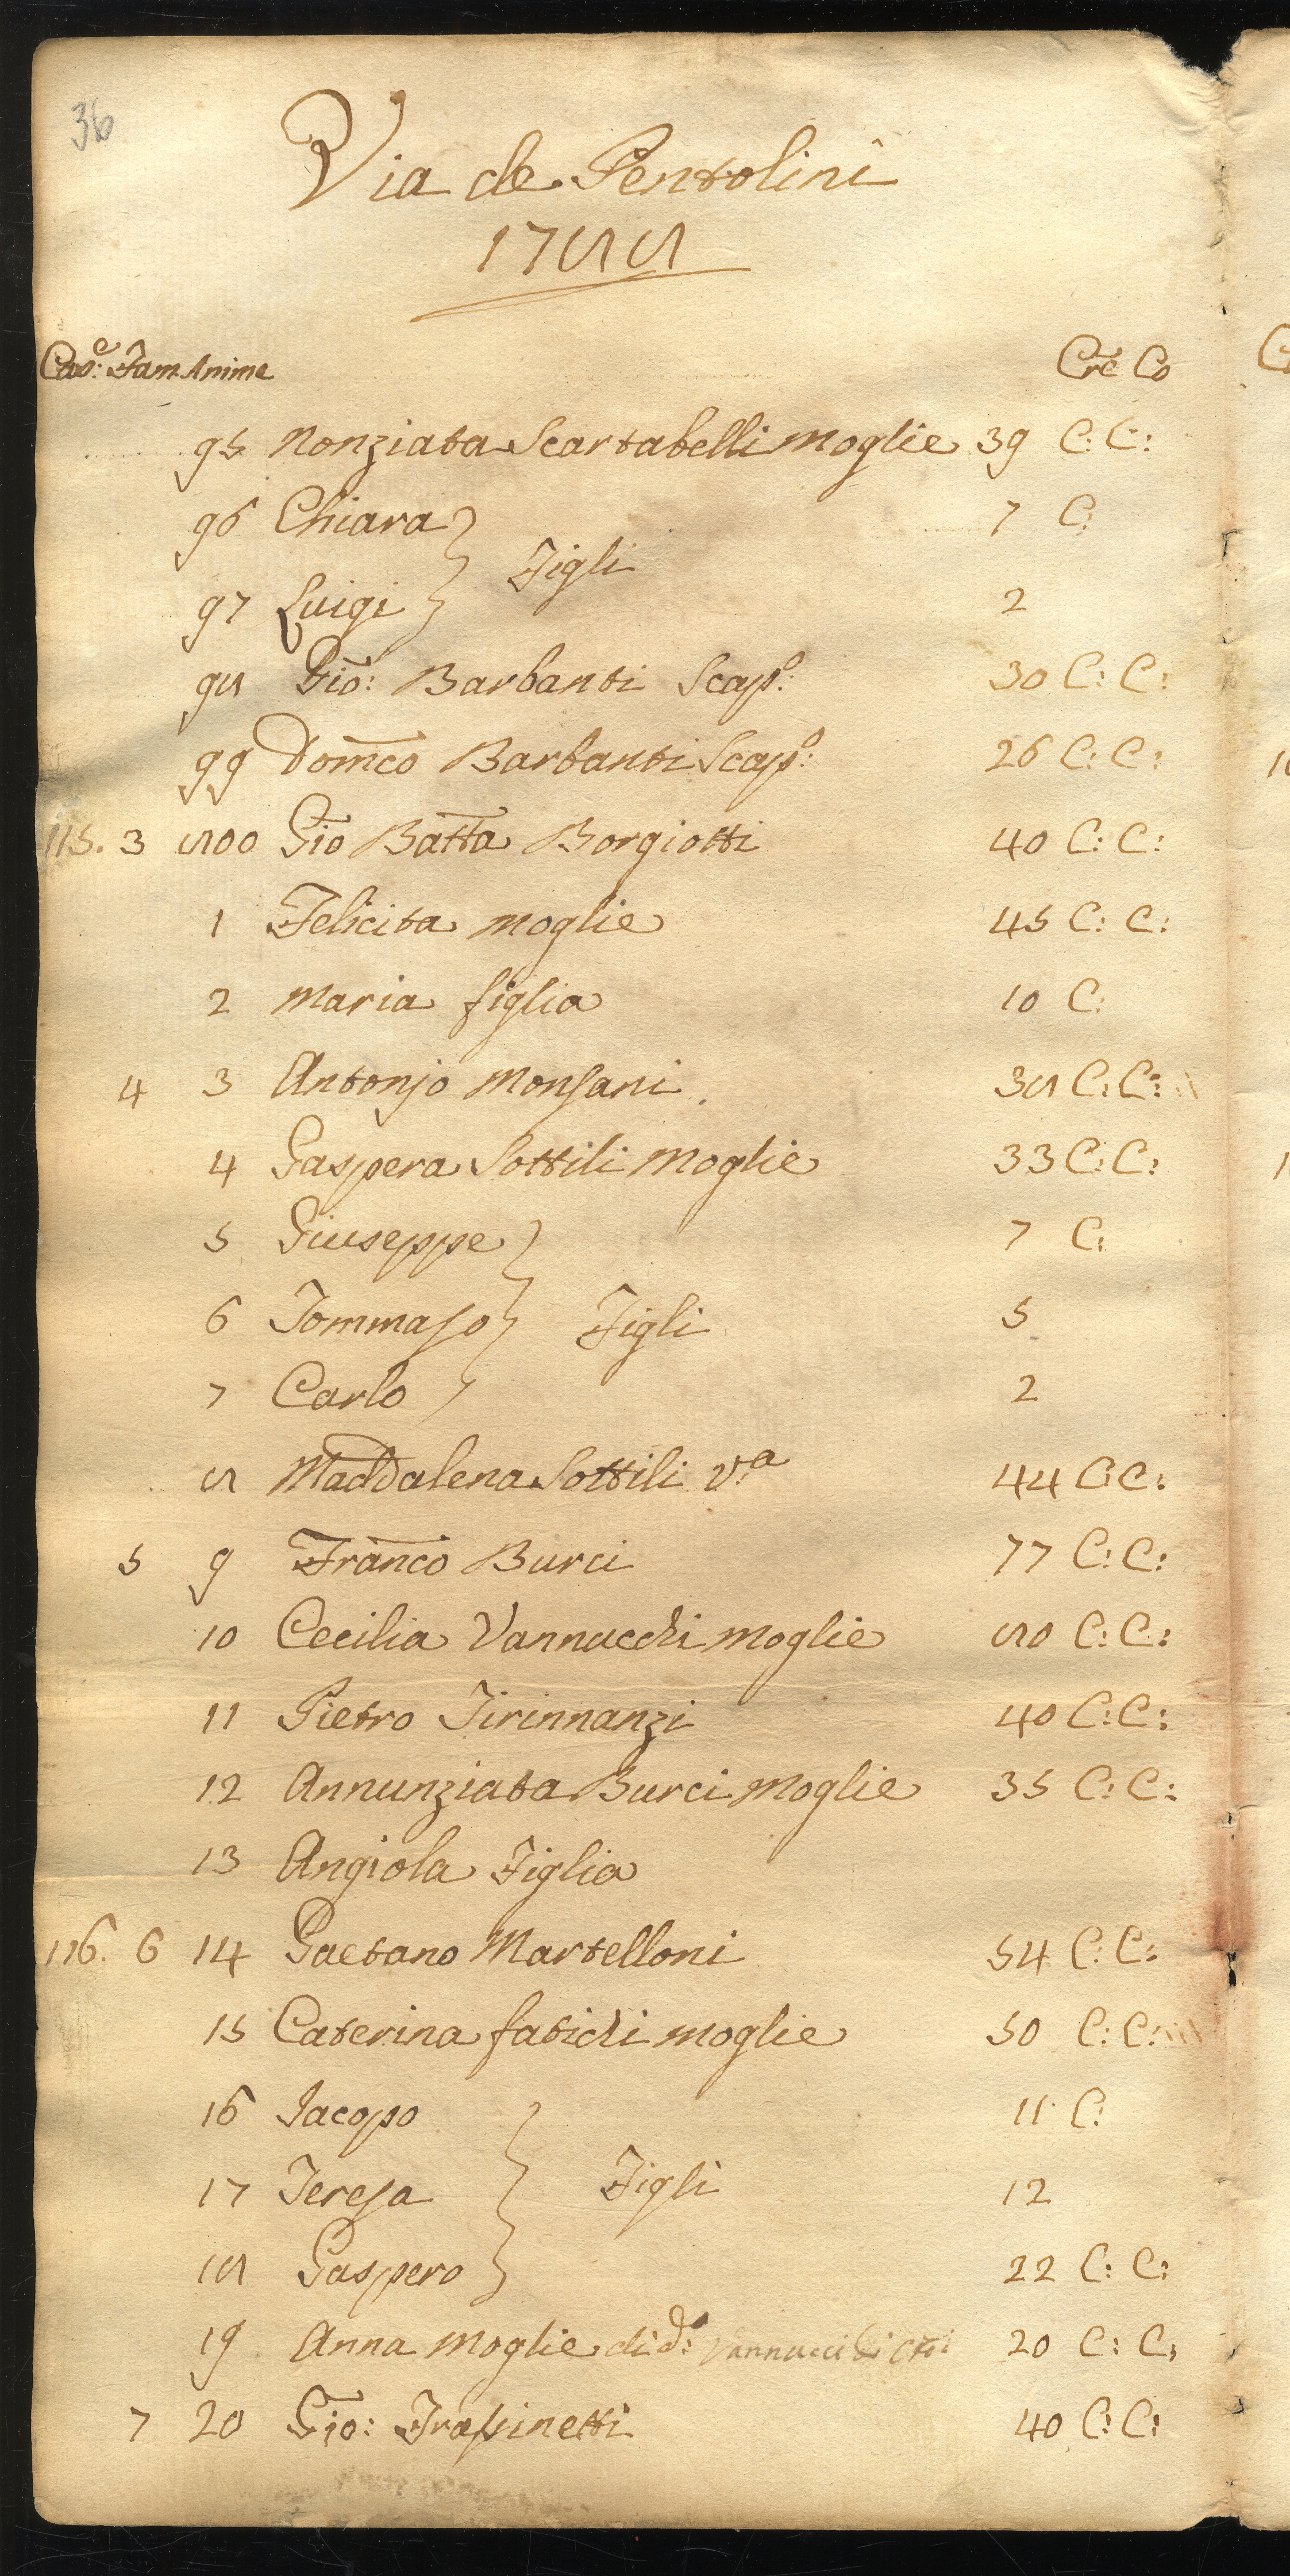 36
Via de Pentolini
1788
Cas:e Fam Anime Cre Co
95 Nonziata Scartabelli Moglie 39 C: C:
96 Chiara 7 C:
Figli
97 Luigi 2
98 Gio: Barbanti Scap.o: 30 C: C:
99 Domco Barbanti Scap.o: 26 C: C:
115. 3 800 Gio Batta Borgiotti 40 C: C:
1 Felicita moglie 45 C: C:
2 Maria figlia 10 C:
4 3 Antonjo Monsani. 38 C: C:
4 Gaspera Sottili Moglie 33 C: C:
5 Giuseppe 7 C:
6 Tommaso Figli 5
7 Carlo 2
8 Maddalena Sottili v.a 44 C C:
5 9 Franco Burci 77 C: C:
10 Cecilia Vannucchi moglie 80 C: C:
11 Pietro Tirinnanzi 40 C: C:
12 Annunziata Burci Moglie 35 C: C:
13 Angiola Figlia
116. 6 14 Gaetano Martelloni 54 C: C:
15 Caterina fatichi moglie 50 C: C:
16 Jacopo 11 C:
17 Teresa Figli 12
18 Gaspero 22 C: C:
19 Anna Moglie di d.o: Vannucci di 20 C: C:
7 20 Gio: Frassinetti 40 C: C: